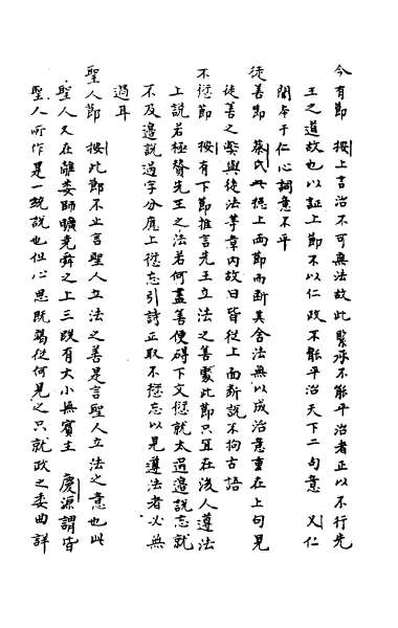 今有節　按上言治不可無法故此緊承不能平治者正以不行先
王之道故也以証上節不以仁政不能平治天下二句意　又仁
聞本于仁心詞意不平
徒善節　蔡氏此總上两節而断其舍法無以成治意重在上句見
徒善之弊與徒法等章内故曰皆從上面断說不拘古語
不愆節　按有下節推言先王立法之善處此節只宜在後人遵法
上說若極贊先王之法若何盡善便碍下文愆就太過邊說忘就
不及邊說過字分應上愆忘引詩正取不愆忘以見遵法者必無
過耳
聖人節　按此節不止言聖人立法之善是言聖人立法之意也此
聖人又在離婁師曠堯舜之上三段有大小無賓主　慶源謂皆
聖人所作是一統說也但心思既竭從何見之只就政之委曲詳